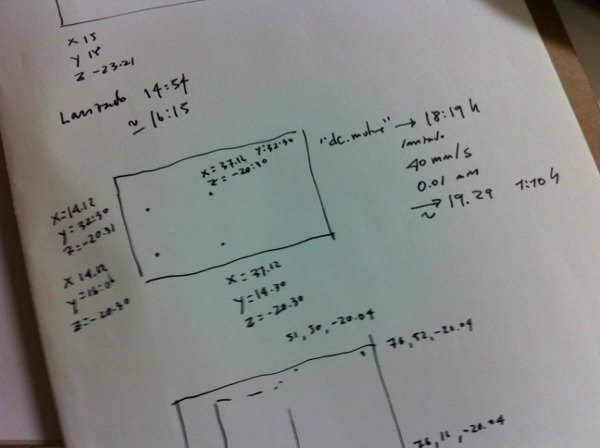 X 15
Y 15
Z -23.21
Lanzado 14:54
≃ 16:15
X=37.12 Y:32:30
Z=-20:30
"dc.motor" → 18:19 h
lanzado
40 mm/s
0.01 mm
→
~ 19.29 1:10 h
X=14.12
Y=32:30
Z=-20.31
X 14.12
Z=-20.30
X=37.12
Y=14.30
Z=-20.30
51, 50, -20.04
76, 52, -20.04
76, 11, -20.04